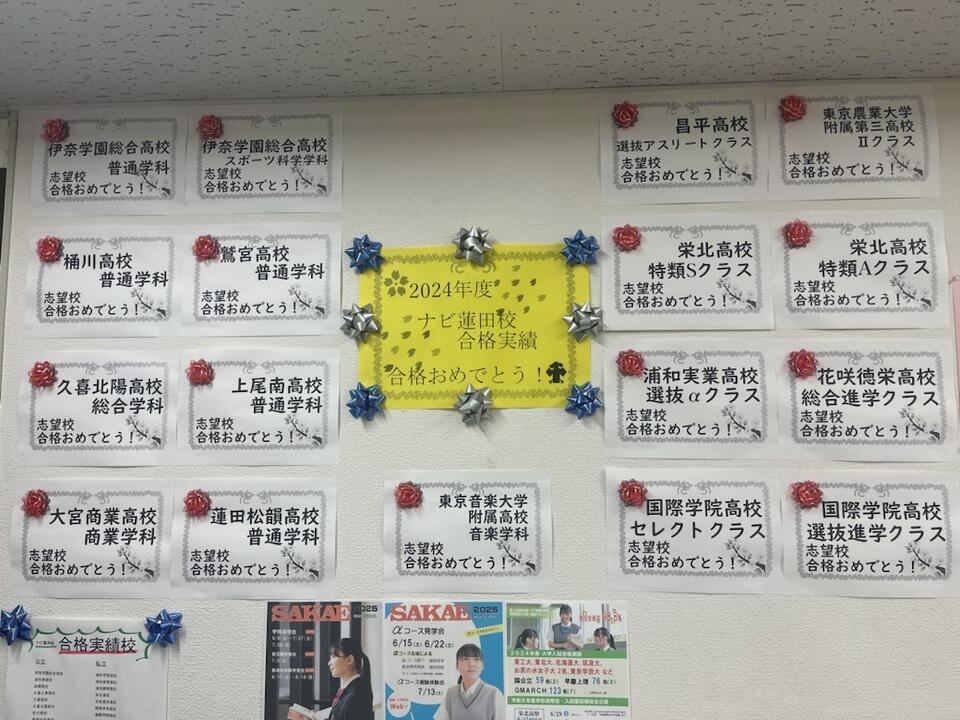 伊奈学園総合高校
普通学科
志望校
合格おめでとう!
伊奈学園総合高校
スポーツ科学学科
志望校
合格おめでとう!
昌平高校
選抜アスリートクラス
志望校
合格おめでとう!
東京農業大学
附属第三高校
Ⅱクラス
志望校
合格おめでとう!
桶川高校
普通学科
志望校
合格おめでとう!
鷲宮高校
普通学科
志望校
合格おめでとう!
2024年度
ナビ蓮田校
合格実績
合格おめでとう!
栄北高校
特類Sクラス
志望校
合格おめでとう!
栄北高校
特類Aクラス
志望校
合格おめでとう!
久喜北陽高校
総合学科
志望校
合格おめでとう!
上尾南高校
普通学科
志望校
合格おめでとう!
浦和実業高校
選抜αクラス
志望校
合格おめでとう!
花咲徳栄高校
総合進学クラス
志望校
合格おめでとう!
大宮商業高校
商業学科
志望校
合格おめでとう!
蓮田松韻高校
普通学科
志望校
合格おめでとう!
東京音楽大学
附属高校
音楽学科
志望校
合格おめでとう!
国際学院高校
セレクトクラス
志望校
合格おめでとう!
国際学院高校
選抜進学クラス
志望校
合格おめでとう!
合格実績校
公立
私立
SAKAE 2025
学校説明会
SAKAE 2025
αコース見学会
6/15(土) 6/22(土)
αコース生徒による
αコース実験体験会
7/13(土)
Web
2024年春 大学入試合格実績
東工大、東北大、北海道大、筑波大、
お茶の水女子大2名、東京学芸大 など
国公立 59名 早慶上理 76名
GMARCH 123名
栄北高祭 6/29